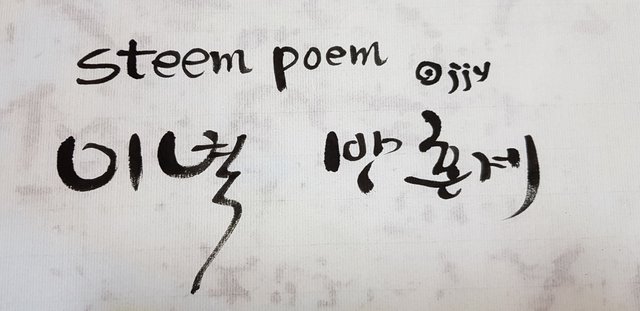 steem poem @jjy
이별 방훈계